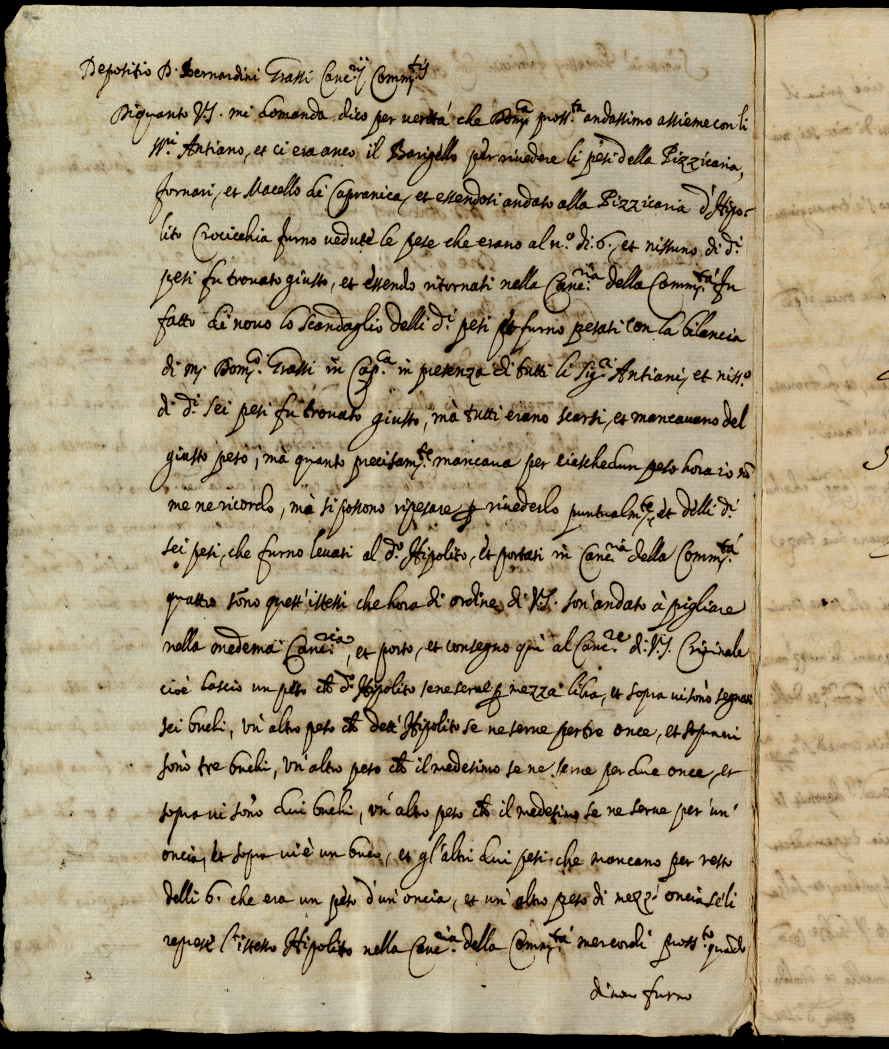 Depositio D. Bernardini Grassi Canc.rij Comm.tis
Di quanto V.S. mi domanda dico per verità che Dom.ca pross.ta andassimo assieme con li
ss.ri Antiano, et ci era anco il Barigello per rivedere li pesi della Pizzicaria,
fornari, et Macello di Capranica, et essendosi andato alla Pizzicaria d'Hipo-
lito Crocicchia furno vedute le pese che erano al n.o di 6. et nissuno di d.i
pesi fu trovato giusto, et essendo ritornati nella Canc.ria della Comm.tà fu
fatto di novo lo scandaglio delli d.i pesi et furno pesati con la bilancia
di m. Dom.co Grassi in Cap.ca in presenza di tutti li Sig.ri Antiani, et niss.o
di d.i sei pesi fu trovato giusto, mà tutti erano scarsi, et mancavano del
giusto peso, mà quanto precisam.te mancava per ciaschedun peso hora io nō
me ne ricordo, mà si possono ripesare p rivederlo puntualm.te, et delli d.i
sei pesi, che furno levati al d.o Hipolito, et portati in Canc.ria della Comm.tà
quattro sono quest'istessi che hora di ordine di V.S. son'andato à pigliare
nella medema Canc.ria, et porto, et consegno quì al Canc.re di V.S. Criminale
cioè lascio un peso ch d.o Hipolito se ne serve p mezza libra, et sopra vi sono segnati
sei buchi, un'altro peso ch dett'Hipolito se ne serve per tre once, et sopra vi
sono tre buchi, un'altro peso ch il medesimo se ne serve per due once, et
sopra vi sono dui buchi, un'altro peso ch il medesimo se ne serve per un'
oncia, et sopra vi è un buco, et gl'altri dui pesi che mancano per resto
delli 6. che era un peso d'un'oncia, et un'altro peso di mezz'oncia se li
represe l'istesso Hipolito nella Canc.ria della Comm.tà mercordì pross.to quando
di novo furno